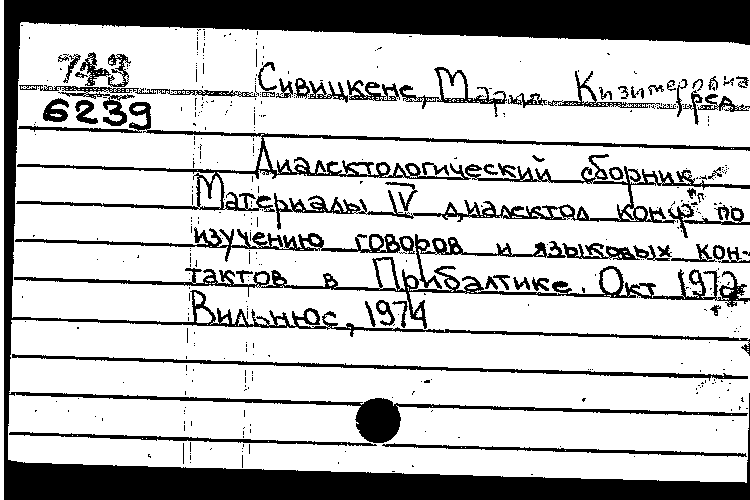 74-3
6239
Сивицкене, Мария Кизимеровна,
ред
Диалектологический сборник
Материалы IV диалектол конф. по
изучению говоров и языковых кон-
тактов в Прибалтике. Окт 1972
Вильнюс, 1974